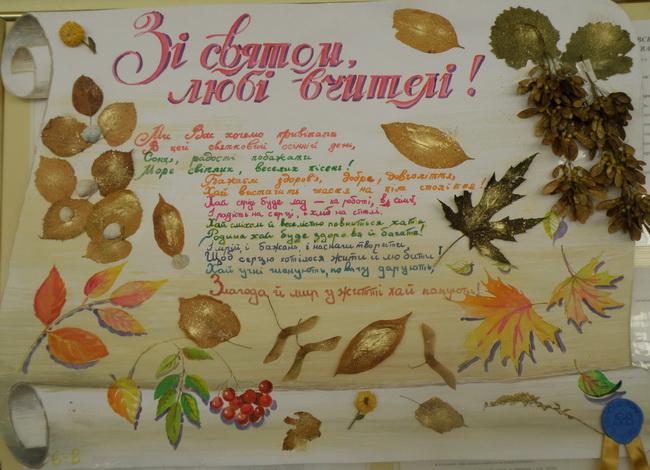 Зі святом,
любі вчителі!
Ми Вас хочемо привітати
В цей святковий осінній день,
Сонця, радості побажати
Море світлих веселих пісень!
Бажаєм здоров'я, добра, довголіття,
Хай вистачить щастя на пів століття!
Хай скрізь буде лад — на роботі, в сім'ї,
І радість на серці, і хліб на столі.
Хай сміхом й веселістю повниться хата,
Родина хай буде здорова й багата!
І мрій і бажань, і наснаги творити
Щоб серцю хотілося жити й любити!
Хай учні шанують, повагу дарують,
Злагода й мир у житті хай панують!
6-В